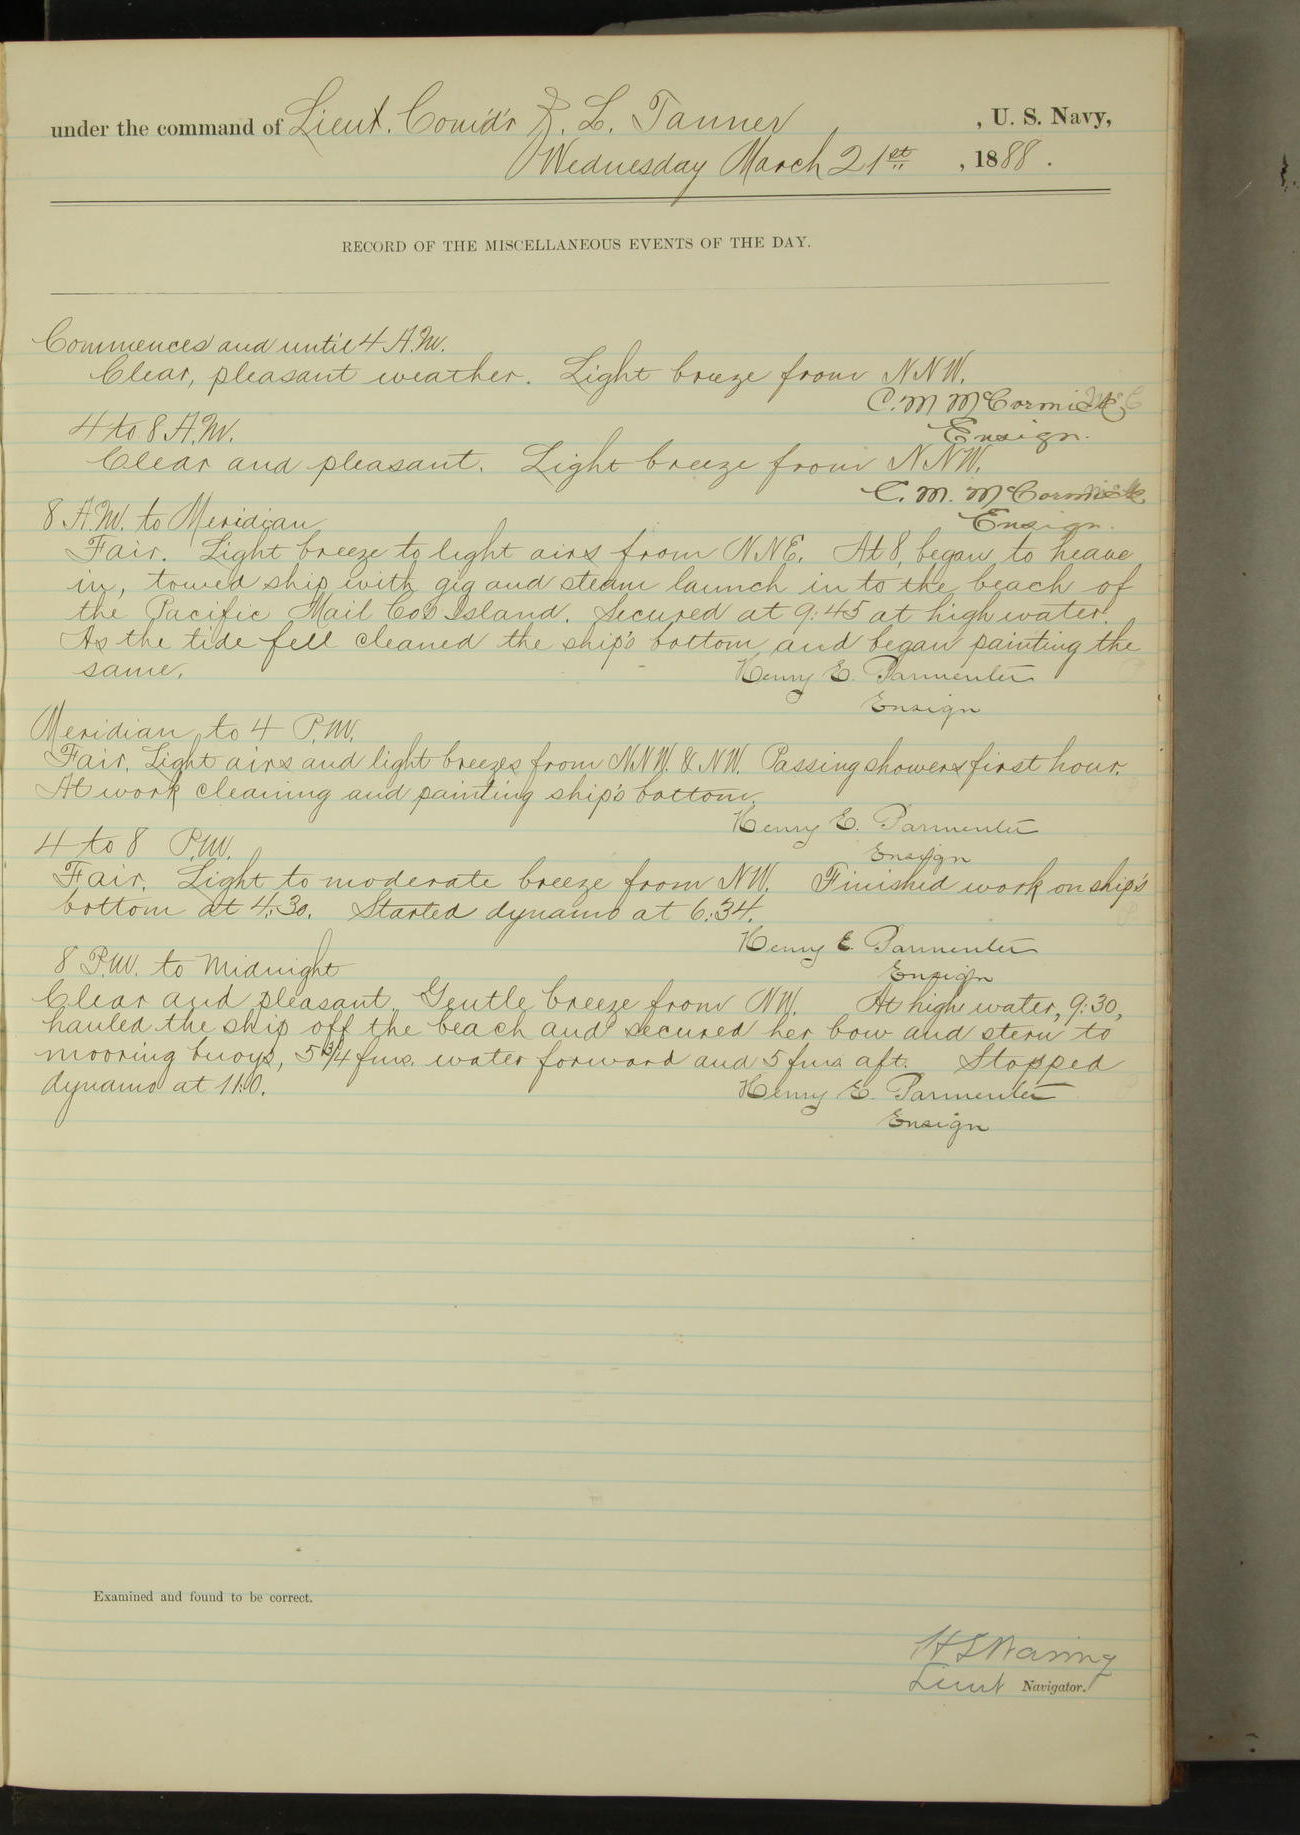 under the command of Lieut. Comd'r Z. L. Tanner, U. S. Navy,
Wednesday March 21st, 1888.
RECORD OF THE MISCELLANEOUS EVENTS OF THE DAY.
Commences and until 4 A.M.
Clear, pleasant weather. Light breeze from NNW.
C. M. McCormick,
Ensign.
4 to 8 A.M.
Clear and pleasant. Light breeze from NNW.
C. M. McCormick
Ensign.
8 A.M. to Meridian
Fair. Light breeze to light airs from NNE. At 8, began to heave
in, towed ship with gig and steam launch in to the beach of
the Pacific Mail Co's Island. Secured at 9:45 at high water.
As the tide fell cleaned the ship's bottom and began painting the
same.
Henry E. Parmenter
Ensign
Meridian to 4 P.M.
Fair. Light airs and light breezes from NNW. & NW. Passing showers first hour.
At work cleaning and painting ship's bottom.
Henry E. Parmenter
Ensign
4 to 8 P.M.
Fair. Light to moderate breeze from NW. Finished work on ship's
bottom at 4:30. Started dynamo at 6:34.
Henry E. Parmenter
Ensign
8 P.M. to Midnight
Clear and pleasant. Gentle breeze from NW. At high water, 9:30,
hauled the ship off the beach and secured her bow and stern to
mooring buoys, 5 3/4 fms. water forward and 5 fms aft. Stopped
dynamo at 11:0.
Henry E. Parmenter
Ensign
Examined and found to be correct.
H S Waring
Lieut Navigator.